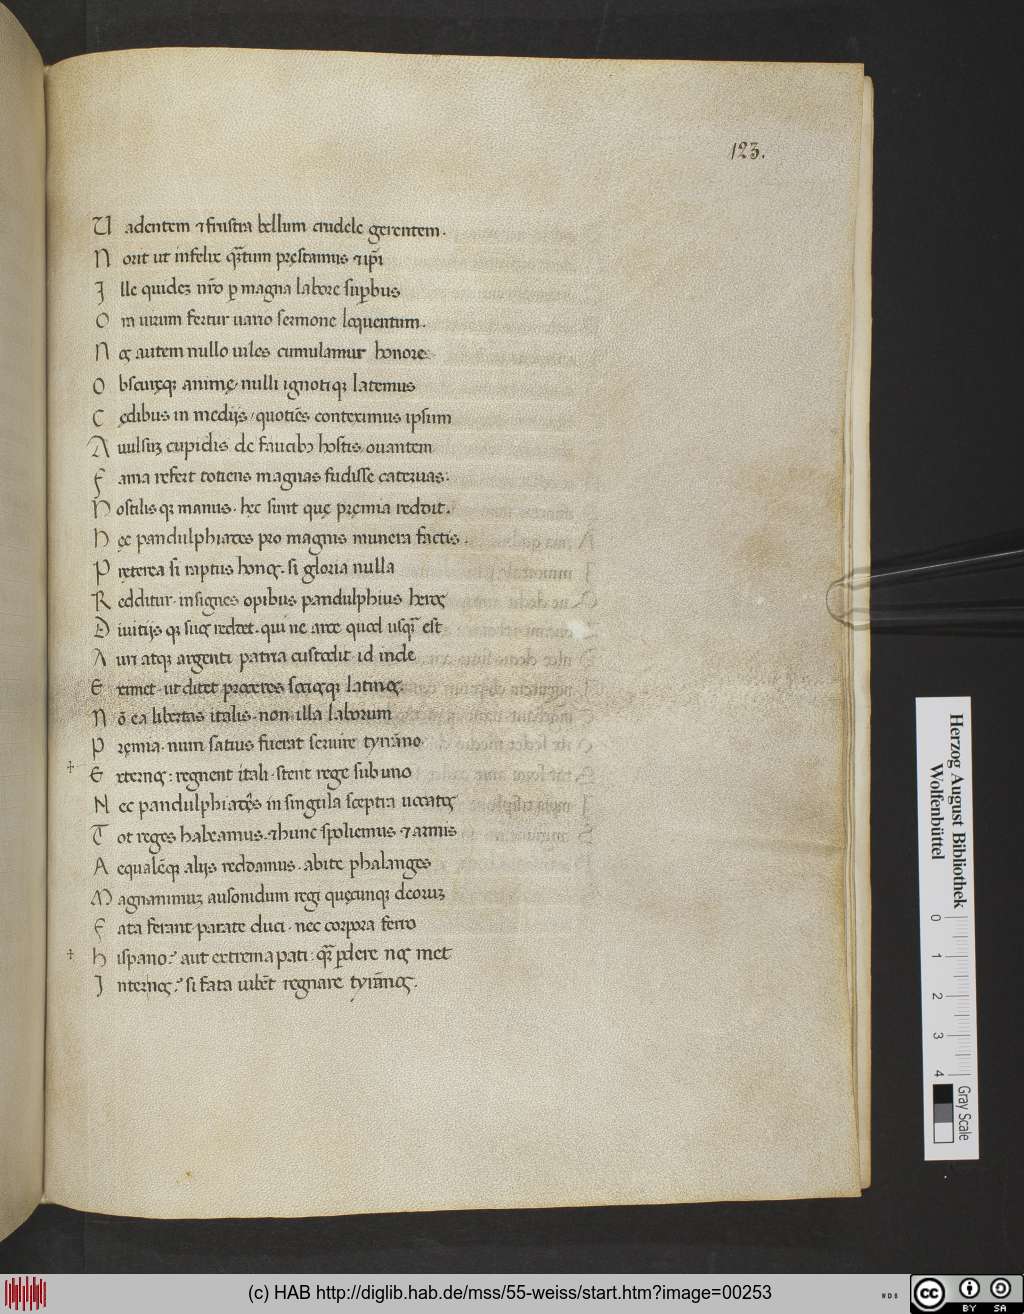 123.
U adentem ⁊ frustra bellum crudele gerentem.
N orit ut infelix q̄tum pręstamus ⁊ ip̄i
I lle quideʒ nr̄o ꝑ magna labore suꝑbus
O m uirum fertur uario sermone loquentum.
N os autem nullo uiles cumulamur honore
O bscuręqꝫ animę, nulli ignotiqꝫ latemus
C ędibus in medijs, quotiēs conteximus ipsum
A uulsuʒ cupidis de faucibꝫ hostis ouantem
F ama refert totiens magnas fudisse cateruas:
H ostilisqꝫ manus. hęc sunt quę pręmia reddit.
H ęc pandulphiades pro magnis munera factis.
P ręterea si raptus honos. si gloria nulla
R edditur. insignes opibus pandulphius heros
D iuitijsqꝫ suos redeet. qui ne arce quod usq̄ est
A uri atqꝫ argenti patria custodit id inde
E ximet. ut ditet proceres sociosqꝫ latinos.
N ō ea libertas italis. non illa laborum
P ręmia. num satius fuerat seruire tyrāno
E xternos: regnent itali. stent rege sub uno
N ec pandulphiades in singula sceptra uocatos
T ot reges habeamus. ⁊ hunc spoliemus ⁊ armis
A equalēqꝫ alijs reddamus. abite phalanges
M agnanimuʒ ausonidum regi quęcunqꝫ deoruʒ
F ata ferant parate duci. nec corpora ferro
H ispano? aut extrema pati: q̄ ꝑdere nos met
I nternos? si fata iubēt regnare tyrānos.
Herzog August Bibliothek
Wolfenbüttel
0 1 2 3 4
Gray Scale
(c) HAB http://diglib.hab.de/mss/55-weiss/start.htm?image=00253
cc BY SA